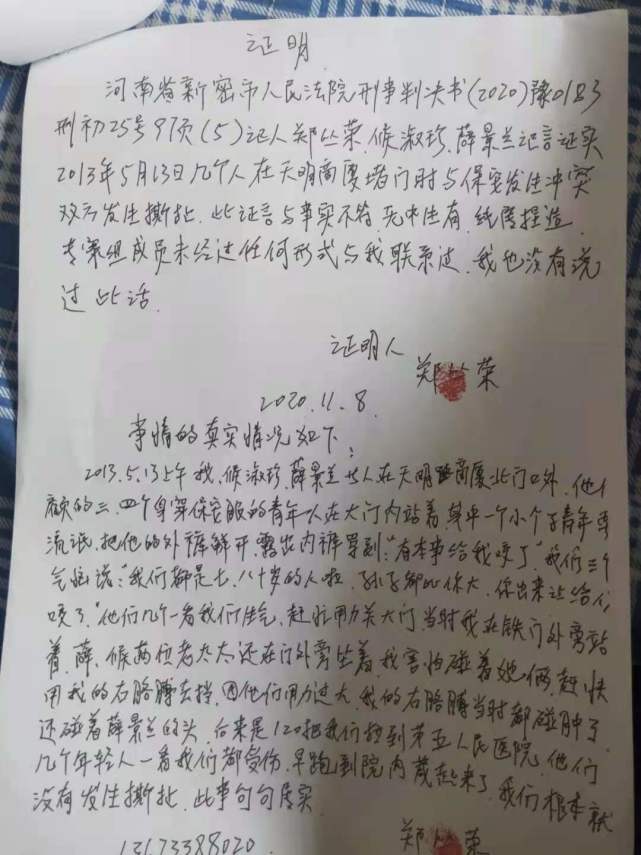 证明
河南省新密市人民法院刑事判决书(2020)豫0183
刑初25号97页(5)证人郑丛荣、候淑珍、薛景兰证言证实
2013年5月13日几个人在天明商厦堵门时与保安发生冲突
双方发生撕扯.此证言与事实不符,无中生有,纯属捏造.
专案组成员未经过任何形式与我联系过.我也没有说
过此话.
证明人
郑丛荣
2020.11.8.
事情的真实情况如下:
2013.5.13上午我、候淑珍、薛景兰共人在天明商厦北门口外,他们
顾的三、四个身穿保安服的青年人在大门内站着,其中一个小个子青年耍
流氓,把他的外裤解开,露出内裤骂到:“有本事给我咬了”我们三个
气恼说:“我们都是七、八十岁的人啦,孙子都比你大,你出来让给你
咬了.”他们几个一看我们生气,赶忙用力关大门,当时我在铁门外旁站
着,薛、候两位老太太还在门外旁坐着,我害怕碰着她俩,赶快
用我的右胳膊去挡,因他们用力过大,我的右胳膊当时都碰肿了
还碰着薛景兰的头,后来是120把我们拉到第五人民医院,他们
几个年轻人一看我们都受伤,早跑到院内藏起来了,我们根本就
没有发生撕扯.此事句句属实.
13173388020
郑丛荣